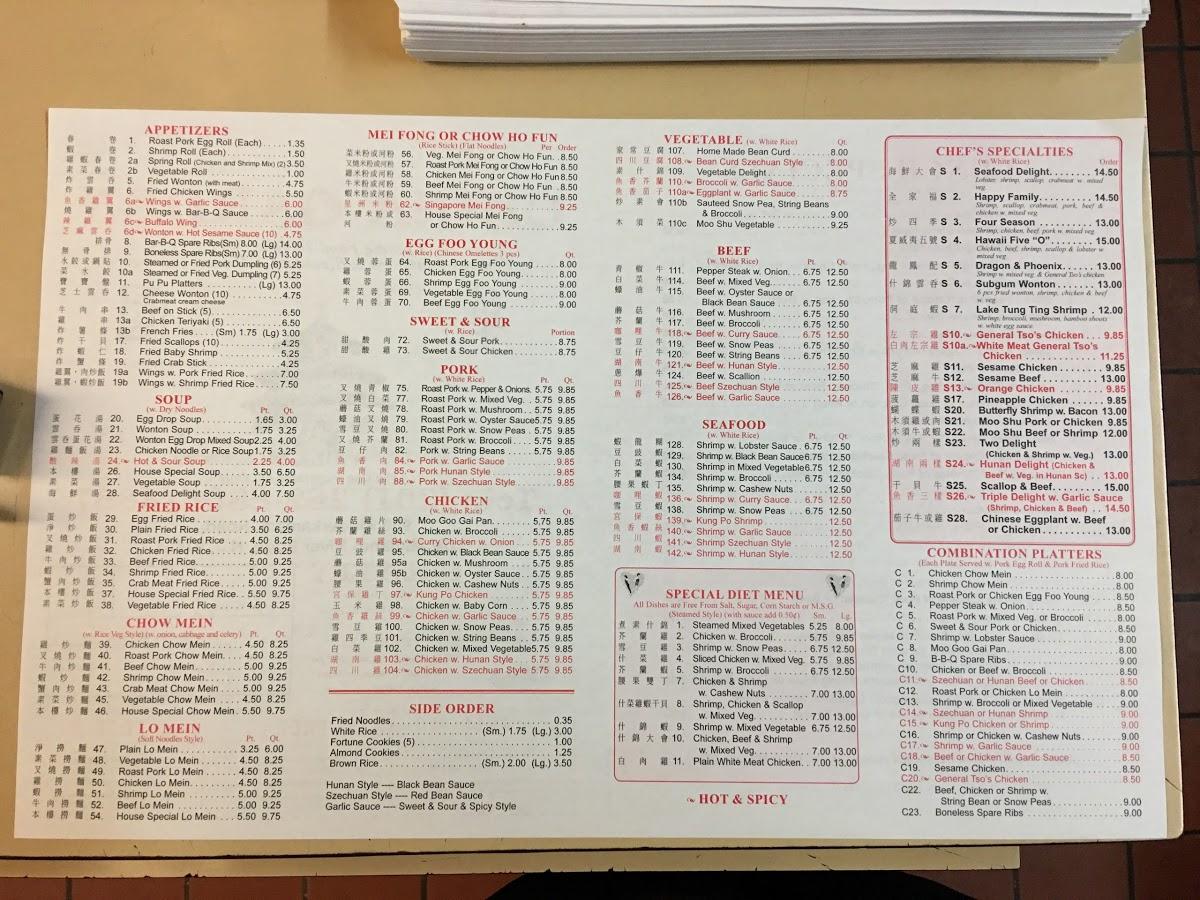 APPETIZERS
春 卷 1. Roast Pork Egg Roll (Each) 1.35
蝦 卷 2. Shrimp Roll (Each) 1.50
雞蝦春卷 2a Spring Roll (Chicken and Shrimp Mix) (2) 3.50
素菜卷 2b Vegetable Roll 1.00
炸雲吞 5. Fried Wonton (with meat) 4.75
炸雞翼 6. Fried Chicken Wings 5.50
魚香雞翼 6a Wings w. Garlic Sauce 6.00
燒雞翼 6b Wings w. Bar-B-Q Sauce 6.00
辣雞翼 6c Buffalo Wing 6.00
芝麻雲吞 6d Wonton w. Hot Sesame Sauce (10) 4.75
排骨 8. Bar-B-Q Spare Ribs(Sm) 8.00 (Lg) 14.00
無骨排 9. Boneless Spare Ribs(Sm) 7.00 (Lg) 13.00
水餃或鍋貼 10. Steamed or Fried Pork Dumpling (6) 5.25
菜水餃 10a Steamed or Fried Veg. Dumpling (7) 5.25
寶寶盤 11. Pu Pu Platters (Lg) 13.00
芝士雲吞 12. Cheese Wonton (10) 4.75
Crabmeat cream cheese
牛肉串 13. Beef on Stick (5) 6.50
雞串 13a Chicken Teriyaki (5) 6.50
炸薯條 13b French Fries (Sm) 1.75 (Lg) 3.00
炸干貝 17. Fried Scallops (10) 4.25
炸蝦仁 18. Fried Baby Shrimp 5.25
炸蟹條 19. Fried Crab Stick 4.25
雞翼·肉炒飯 19a Wings w. Pork Fried Rice 7.00
雞翼·蝦炒飯 19b Wings w. Shrimp Fried Rice 7.50
SOUP
(w. Dry Noodles) Pt. Qt.
蛋花湯 20. Egg Drop Soup 1.65 3.00
雲吞湯 21. Wonton Soup 1.75 3.25
雲吞蛋花湯 22. Wonton Egg Drop Mixed Soup 2.25 4.00
雞麵飯湯 23. Chicken Noodle or Rice Soup 1.75 3.25
酸辣湯 24. Hot & Sour Soup 2.25 4.00
本樓湯 26. House Special Soup 3.50 6.50
素菜湯 27. Vegetable Soup 1.75 3.25
海鮮湯 28. Seafood Delight Soup 4.00 7.50
FRIED RICE
Pt. Qt.
蛋炒飯 29. Egg Fried Rice 4.00 7.00
淨炒飯 30. Plain Fried Rice 3.50 6.25
叉燒炒飯 31. Roast Pork Fried Rice 4.50 8.25
雞炒飯 32. Chicken Fried Rice 4.50 8.25
牛肉炒飯 33. Beef Fried Rice 5.00 9.25
蝦炒飯 34. Shrimp Fried Rice 5.00 9.25
蟹肉炒飯 35. Crab Meat Fried Rice 5.00 9.25
本樓炒飯 37. House Special Fried Rice 5.50 9.75
素菜炒飯 38. Vegetable Fried Rice 4.50 8.25
CHOW MEIN
(w. Rice Veg Style) (w. onion, cabbage and celery) Pt. Qt.
雞炒麵 39. Chicken Chow Mein 4.50 8.25
叉燒炒麵 40. Roast Pork Chow Mein 4.50 8.25
牛肉炒麵 41. Beef Chow Mein 5.00 9.25
蝦炒麵 42. Shrimp Chow Mein 5.00 9.25
蟹肉炒麵 43. Crab Meat Chow Mein 5.00 9.25
素菜炒麵 45. Vegetable Chow Mein 4.50 8.25
本樓炒麵 46. House Special Chow Mein 5.50 9.75
LO MEIN
(Soft Noodles Style) Pt. Qt.
淨撈麵 47. Plain Lo Mein 3.25 6.00
素菜撈麵 48. Vegetable Lo Mein 4.50 8.25
叉燒撈麵 49. Roast Pork Lo Mein 4.50 8.25
雞撈麵 50. Chicken Lo Mein 4.50 8.25
蝦撈麵 51. Shrimp Lo Mein 5.00 9.25
牛肉撈麵 52. Beef Lo Mein 5.00 9.25
本樓撈麵 54. House Special Lo Mein 5.50 9.75
MEI FONG OR CHOW HO FUN
(Rice Stick) (Flat Noodles) Per Order
菜米粉或河粉 56. Veg. Mei Fong or Chow Ho Fun 8.50
叉燒米粉或河粉 57. Roast Pork Mei Fong or Chow Ho Fun 8.50
雞米粉或河粉 58. Chicken Mei Fong or Chow Ho Fun 8.50
牛米粉或河粉 59. Beef Mei Fong or Chow Ho Fun 8.50
蝦米粉或河粉 60. Shrimp Mei Fong or Chow Ho Fun 8.50
星洲米粉 62. Singapore Mei Fong 9.25
本樓米粉或 63. House Special Mei Fong
河粉 or Chow Ho Fun 9.25
EGG FOO YOUNG
(w. Rice) (Chinese Omelettes 3 pcs) Qt.
叉燒蓉蛋 64. Roast Pork Egg Foo Young 8.00
雞蓉蛋 65. Chicken Egg Foo Young 8.00
蝦蓉蛋 66. Shrimp Egg Foo Young 9.00
素菜蓉蛋 69. Vegetable Egg Foo Young 8.00
牛肉蓉蛋 70. Beef Egg Foo Young 9.00
SWEET & SOUR
(w. Rice) Portion
甜酸肉 72. Sweet & Sour Pork 8.75
甜酸雞 73. Sweet & Sour Chicken 8.75
PORK
(w. White Rice) Pt. Qt.
叉燒青椒 75. Roast Pork w. Pepper & Onions 5.75 9.85
叉燒白菜 77. Roast Pork w. Mixed Veg. 5.75 9.85
蘑菇叉燒 78. Roast Pork w. Mushroom 5.75 9.85
蠔油叉燒 79. Roast Pork w. Oyster Sauce 5.75 9.85
雪豆叉燒 80. Roast Pork w. Snow Peas 5.75 9.85
叉燒芥蘭 81. Roast Pork w. Broccoli 5.75 9.85
豆仔肉 82. Pork w. String Beans 5.75 9.85
魚香肉 84. Pork w. Garlic Sauce 9.85
湖南肉 85. Pork Hunan Style 9.85
四川肉 88. Pork w. Szechuan Style 9.85
CHICKEN
(w. White Rice) Pt. Qt.
蘑菇雞片 90. Moo Goo Gai Pan 5.75 9.85
芥蘭雞絲 93. Chicken w. Broccoli 5.75 9.85
咖哩雞 94. Curry Chicken w. Onion 5.75 9.85
豆豉雞 95. Chicken w. Black Bean Sauce 5.75 9.85
蘑菇雞 95a Chicken w. Mushroom 5.75 9.85
蠔油雞 95b Chicken w. Oyster Sauce 5.75 9.85
腰果雞 96. Chicken w. Cashew Nuts 5.75 9.85
宮保雞丁 97. Kung Po Chicken 5.75 9.85
玉米雞 98. Chicken w. Baby Corn 5.75 9.85
魚香雞絲 99. Chicken w. Garlic Sauce 5.75 9.85
雪豆雞 100. Chicken w. Snow Peas 5.75 9.85
雞四季豆 101. Chicken w. String Beans 5.75 9.85
白菜雞 102. Chicken w. Mixed Vegetable 5.75 9.85
湖南雞 103. Chicken w. Hunan Style 5.75 9.85
四川雞 104. Chicken w. Szechuan Style 5.75 9.85
SIDE ORDER
Fried Noodles 0.35
White Rice (Sm.) 1.75 (Lg.) 3.00
Fortune Cookies (5) 1.00
Almond Cookies 1.25
Brown Rice (Sm.) 2.00 (Lg.) 3.50
Hunan Style ---- Black Bean Sauce
Szechuan Style ---- Red Bean Sauce
Garlic Sauce ---- Sweet & Sour & Spicy Style
VEGETABLE (w. White Rice) Qt.
家常豆腐 107. Home Made Bean Curd 8.00
四川豆腐 108. Bean Curd Szechuan Style 8.00
素什錦 109. Vegetable Delight 8.00
魚香芥蘭 110. Broccoli w. Garlic Sauce 8.00
魚香茄子 110a Eggplant w. Garlic Sauce 8.75
炒素會 110b Sauteed Snow Pea, String Beans
& Broccoli 9.00
木須菜 110c Moo Shu Vegetable 9.25
BEEF
(w. White Rice) Pt. Qt.
青椒牛 111. Pepper Steak w. Onion 6.75 12.50
白菜牛 114. Beef w. Mixed Veg. 6.75 12.50
蠔油牛 115. Beef w. Oyster Sauce or
Black Bean Sauce 6.75 12.50
蘑菇牛 116. Beef w. Mushroom 6.75 12.50
芥蘭牛 117. Beef w. Broccoli 6.75 12.50
咖哩牛 118. Beef w. Curry Sauce 6.75 12.50
雪豆牛 119. Beef w. Snow Peas 6.75 12.50
豆仔牛 120. Beef w. String Beans 6.75 12.50
湖南牛 121. Beef w. Hunan Style 12.50
蔥爆牛 124. Beef w. Scallion 12.50
四川牛 125. Beef Szechuan Style 12.50
魚香牛 126. Beef w. Garlic Sauce 12.50
SEAFOOD
(w. White Rice) Pt. Qt.
蝦龍糊 128. Shrimp w. Lobster Sauce 6.75 12.50
豆豉蝦 129. Shrimp w. Black Bean Sauce 6.75 12.50
白菜蝦 130. Shrimp in Mixed Vegetable 6.75 12.50
芥蘭蝦 134. Shrimp w. Broccoli 6.75 12.50
腰果蝦丁 135. Shrimp w. Cashew Nuts 12.50
咖哩蝦 136. Shrimp w. Curry Sauce 6.75 12.50
雪豆蝦 138. Shrimp w. Snow Peas 6.75 12.50
宮保蝦 139. Kung Po Shrimp 12.50
魚香蝦 140. Shrimp w. Garlic Sauce 12.50
四川蝦 141. Shrimp w. Szechuan Style 12.50
湖南蝦 142. Shrimp w. Hunan Style 12.50
SPECIAL DIET MENU
All Dishes are Free From Salt, Sugar, Corn Starch or M.S.G.
(Steamed Style) (with sauce add 0.50¢) Sm. Lg.
煮素什錦 1. Steamed Mixed Vegetables 5.25 8.00
芥蘭雞 2. Chicken w. Broccoli 5.75 9.85
雪豆蝦 3. Shrimp w. Snow Peas 6.75 12.50
什菜雞 4. Sliced Chicken w. Mixed Veg. 5.75 9.85
芥蘭蝦 5. Shrimp w. Broccoli 6.75 12.50
腰果雙丁 7. Chicken & Shrimp
w. Cashew Nuts 7.00 13.00
什菜雞蝦干貝 8. Shrimp, Chicken & Scallop
w. Mixed Veg. 7.00 13.00
什錦蝦 9. Shrimp w. Mixed Vegetable 6.75 12.50
什錦大會 10. Chicken, Beef & Shrimp
w. Mixed Veg. 7.00 13.00
白肉雞 11. Plain White Meat Chicken 7.00 13.00
HOT & SPICY
CHEF'S SPECIALTIES
(w. White Rice) Order
海鮮大會 S 1. Seafood Delight 14.50
Lobster, shrimp, scallop, crabmeat w. mixed
veg
全家福 S 2. Happy Family 14.50
Shrimp, scallop, crabmeat, pork, beef &
chicken w. mixed veg
炒四季 S 3. Four Season 13.00
Shrimp, chicken, beef, pork w. mixed veg
夏威夷伍號 S 4. Hawaii Five "O" 15.00
Chicken, beef, shrimp, scallop & lobster w
mixed veg.
龍鳳配 S 5. Dragon & Phoenix 13.00
Shrimp w mixed veg & General Tso's chicken
什錦雲吞 S 6. Subgum Wonton 13.00
6 pcs fried wonton, shrimp, chicken & beef
w. veg
洞庭蝦 S 7. Lake Tung Ting Shrimp 12.00
Shrimp, broccoli, mushroom, bamboo shoots
w. white egg sauce
左宗雞 S10. General Tso's Chicken 9.85
白肉左宗雞 S10a. White Meat General Tso's
Chicken 11.25
芝麻雞 S11. Sesame Chicken 9.85
芝麻牛 S12. Sesame Beef 13.00
陳皮雞 S13. Orange Chicken 9.85
菠蘿雞 S17. Pineapple Chicken 9.85
蝴蝶蝦 S20. Butterfly Shrimp w. Bacon 13.00
木須雞或肉 S21. Moo Shu Pork or Chicken 9.85
木須牛或蝦 S22. Moo Shu Beef or Shrimp 12.00
炒兩樣 S23. Two Delight
(Chicken & Shrimp w. Veg.) 13.00
湖南兩樣 S24. Hunan Delight (Chicken &
Beef w. Veg. in Hunan Sc) 13.00
干貝牛 S25. Scallop & Beef 15.00
魚香三樣 S26. Triple Delight w. Garlic Sauce
(Shrimp, Chicken & Beef) 14.50
茄子牛或雞 S28. Chinese Eggplant w. Beef
or Chicken 13.00
COMBINATION PLATTERS
(Each Plate Served w. Pork Egg Roll & Pork Fried Rice)
C 1. Chicken Chow Mein 8.00
C 2. Shrimp Chow Mein 8.00
C 3. Roast Pork or Chicken Egg Foo Young 8.50
C 4. Pepper Steak w. Onion 8.50
C 5. Roast Pork w. Mixed Veg. or Broccoli 8.50
C 6. Sweet & Sour Pork or Chicken 8.50
C 7. Shrimp w. Lobster Sauce 9.00
C 8. Moo Goo Gai Pan 8.00
C 9. B-B-Q Spare Ribs 9.00
C10. Chicken or Beef w. Broccoli 8.50
C11. Szechuan or Hunan Beef or Chicken 8.50
C12. Roast Pork or Chicken Lo Mein 8.00
C13. Shrimp w. Broccoli or Mixed Vegetable 9.00
C14. Szechuan or Hunan Shrimp 9.00
C15. Kung Po Chicken or Shrimp 9.00
C16. Shrimp or Chicken w. Cashew Nuts 8.50
C17. Shrimp w. Garlic Sauce 9.00
C18. Beef or Chicken w. Garlic Sauce 8.50
C19. Sesame Chicken 8.50
C20. General Tso's Chicken 8.50
C22. Beef, Chicken or Shrimp w.
String Bean or Snow Peas 9.00
C23. Boneless Spare Ribs 9.00